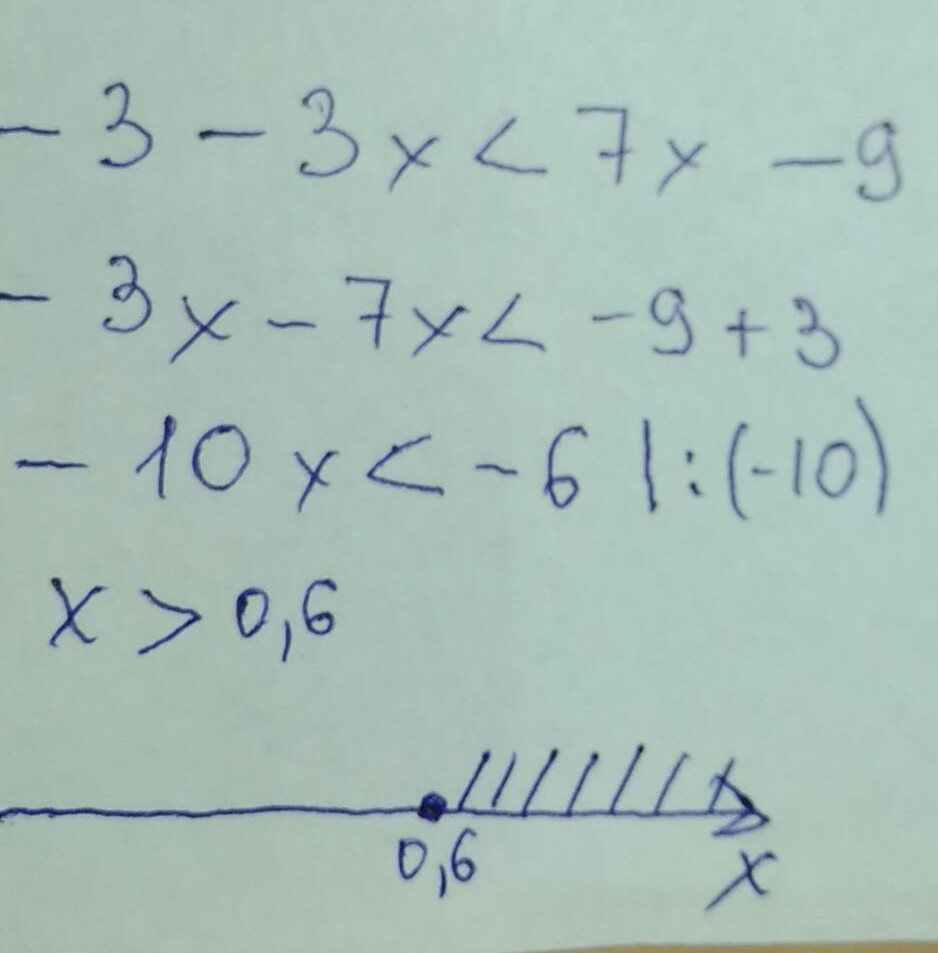 - 3 - 3x < 7x - 9
- 3x - 7x < -9 + 3
- 10x < -6 |:(-10)
x > 0,6
0,6
x